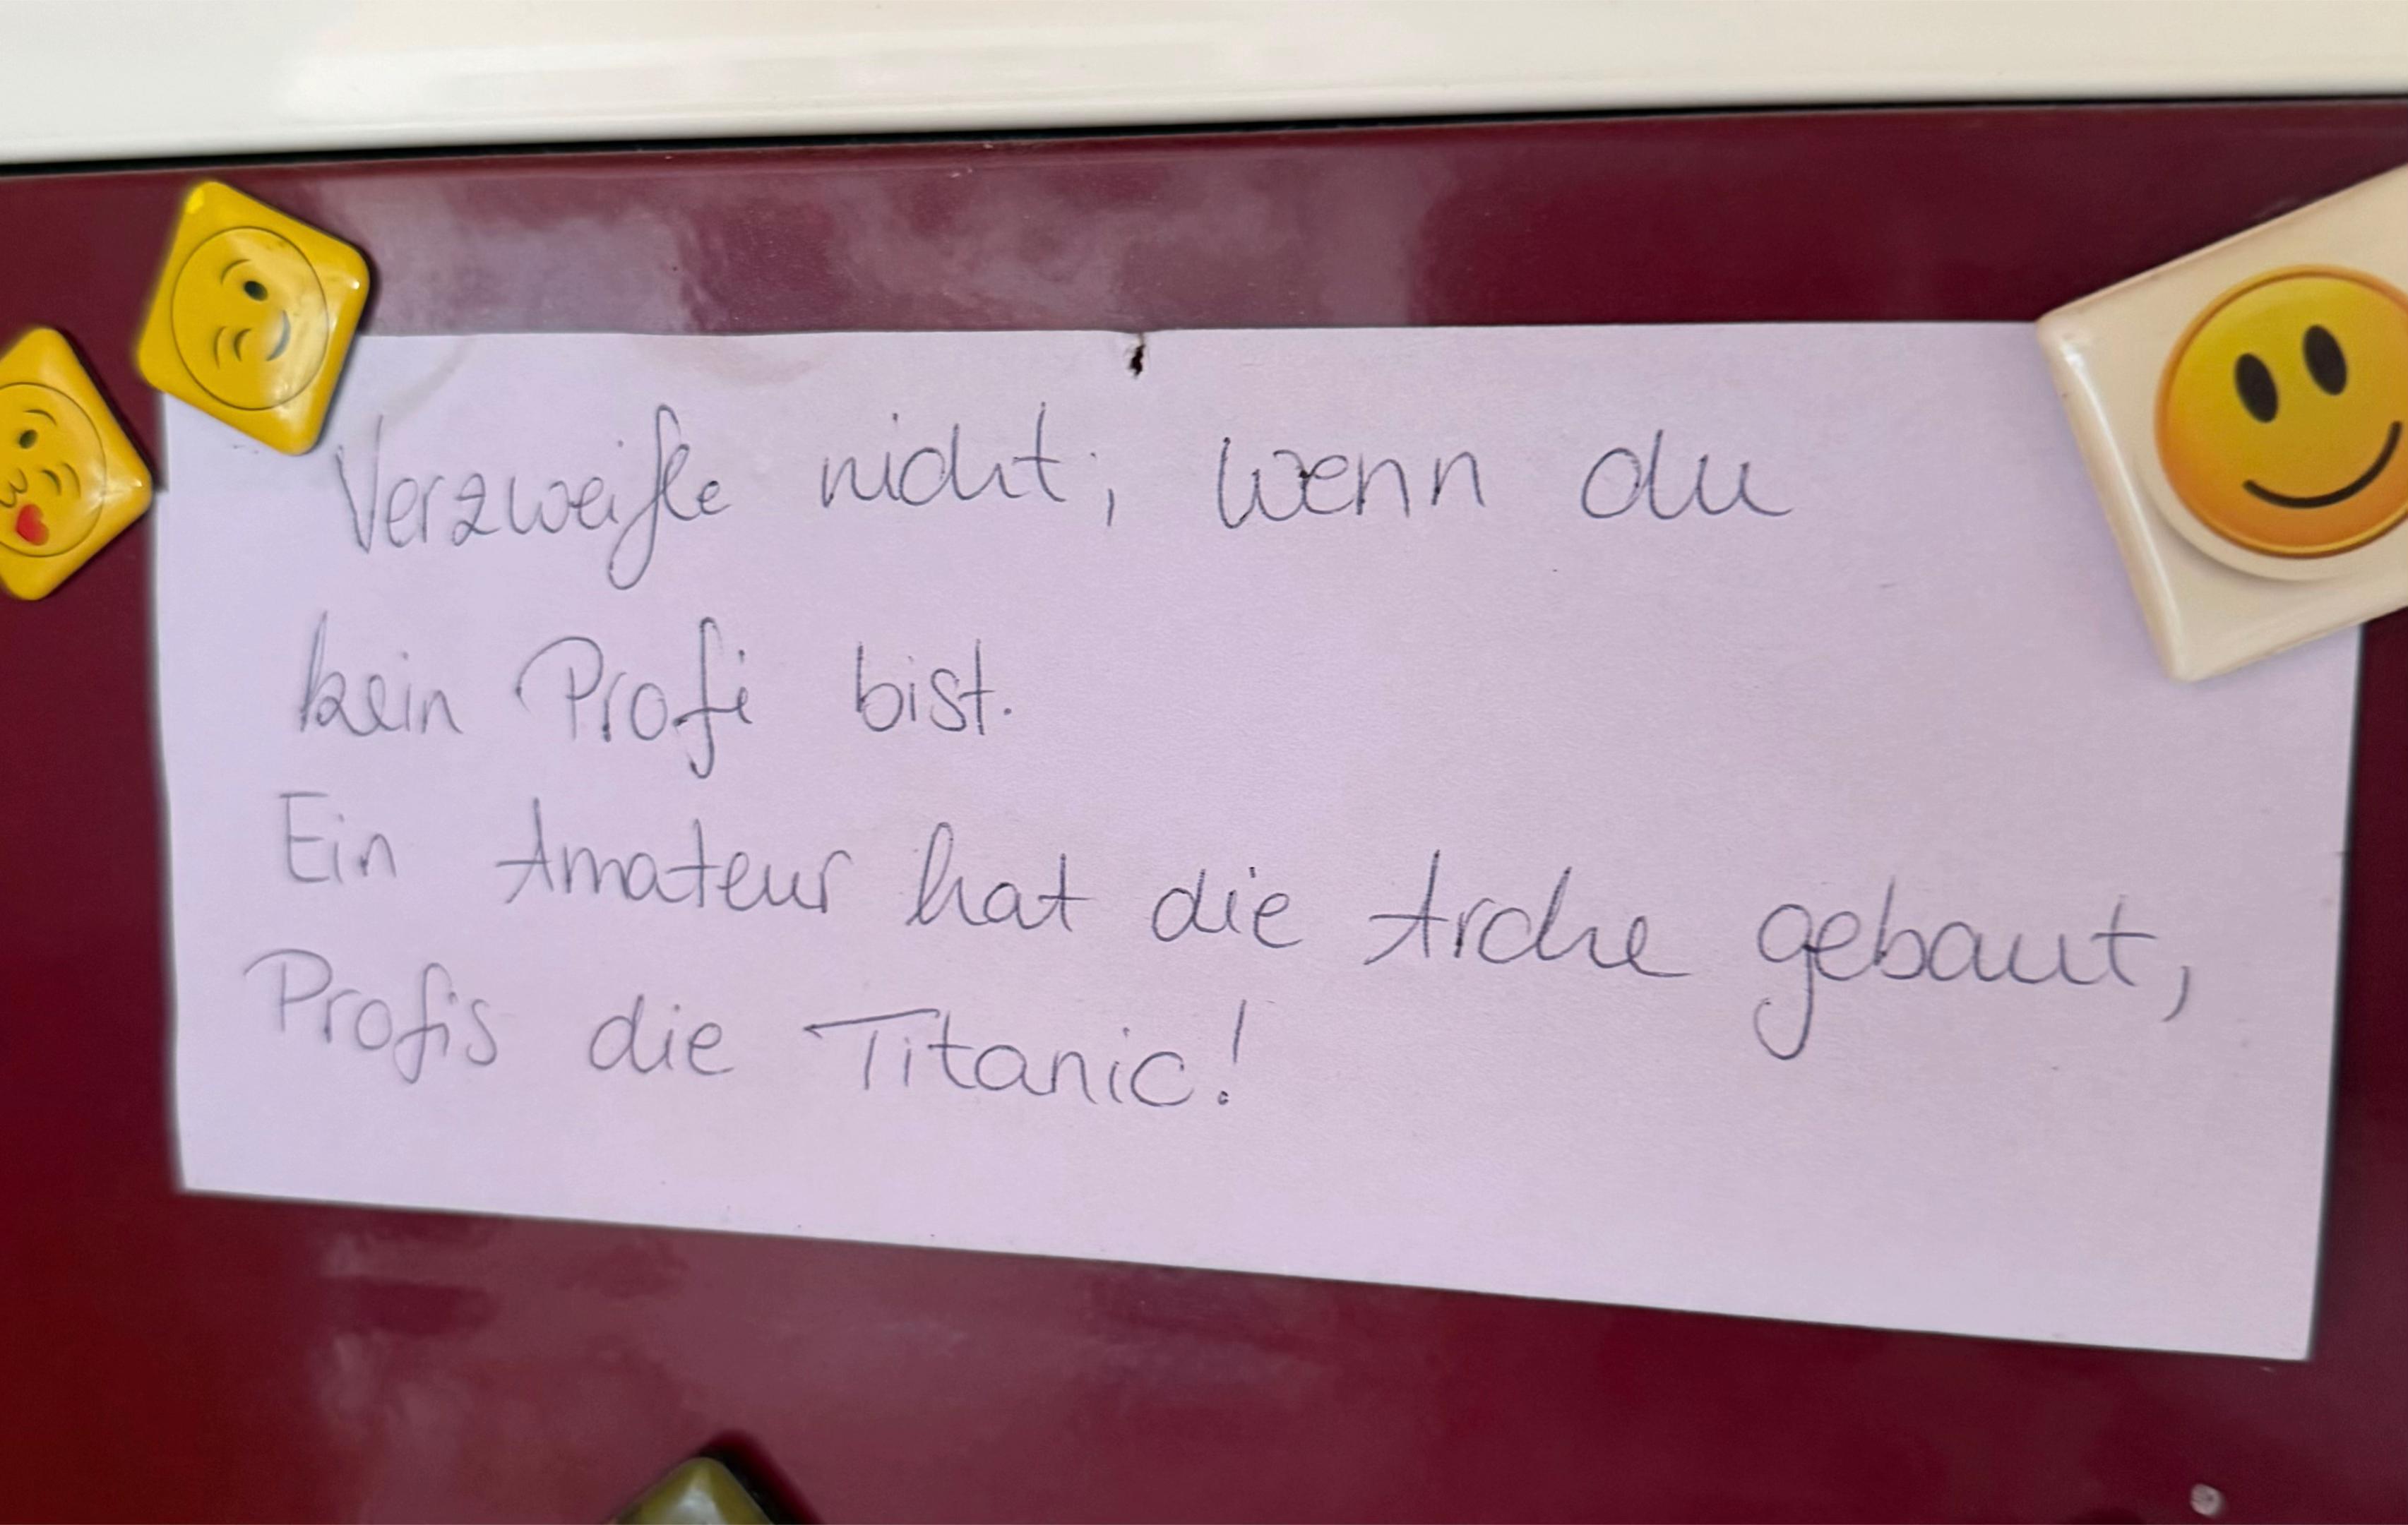 Verzweifle nicht, wenn du
kein Profi bist.
Ein Amateur hat die Arche gebaut,
Profis die Titanic!